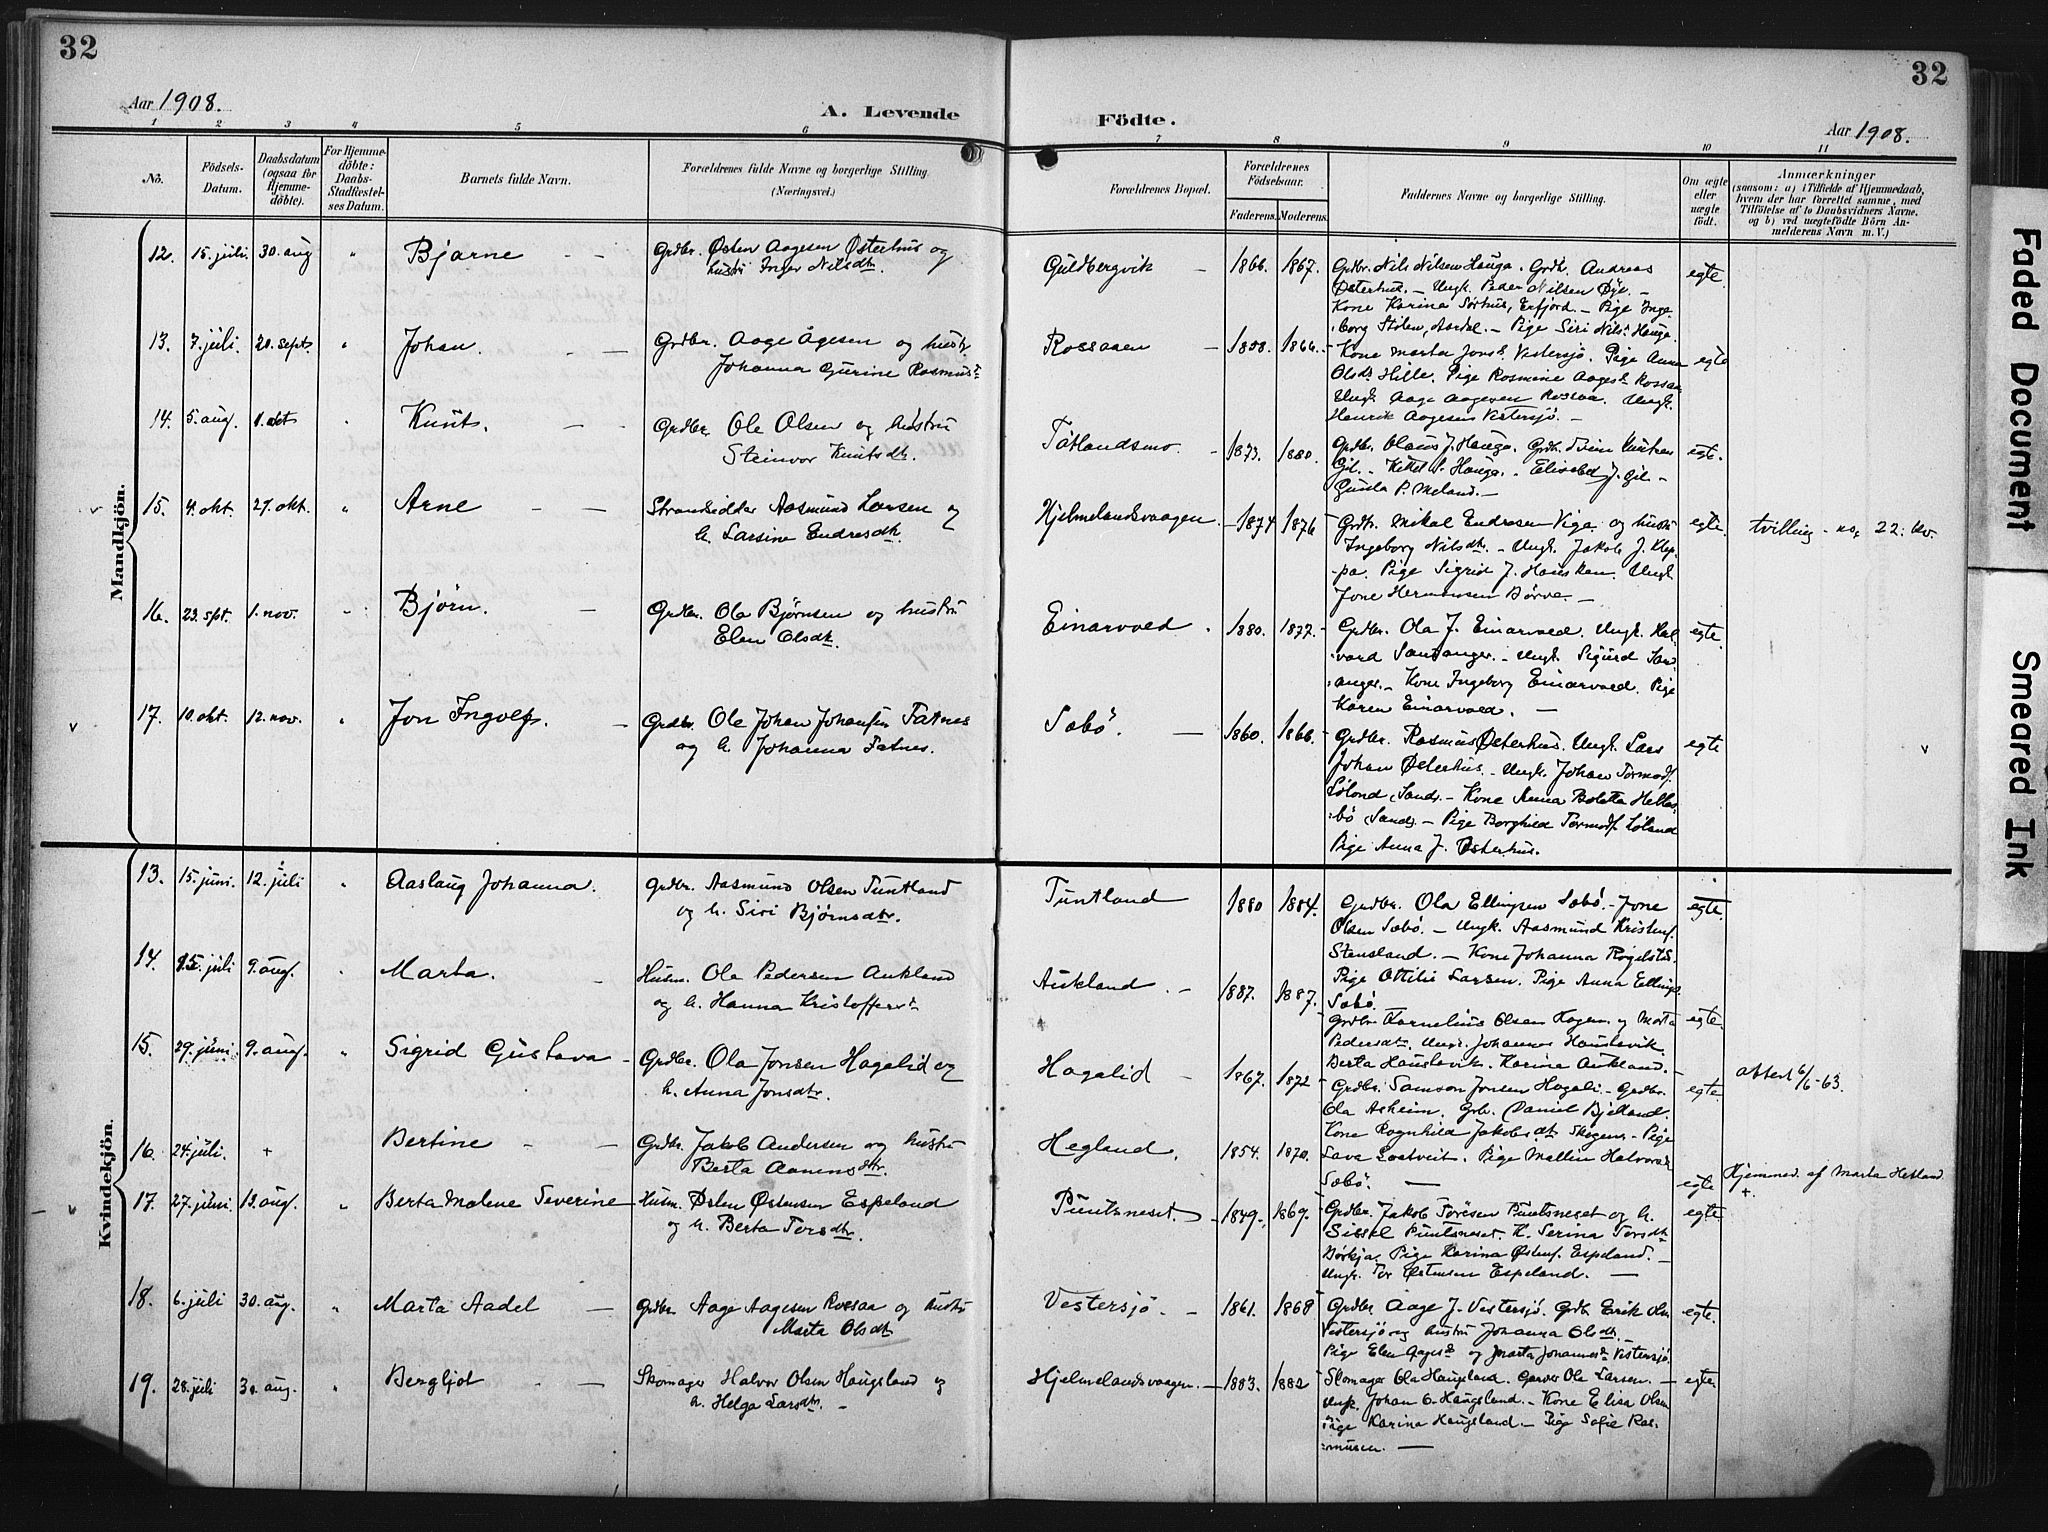 32
32
Aar 1908.
A. Levende
Födte.
Aar 1908.
1 2 3 4 5 6 7 8 9 10 11
No.
Födsels-
Datum.
Daabsdatum
(ogsaa for
Hjemme-
döbte).
For Hjemme-
döbte:
Daabs-
Stadfæstel-
ses Datum.
Barnets fulde Navn.
Forældrenes fulde Navne og borgerlige Stilling.
(Næringsvei.)
Forældrenes Bopæl.
Forældrenes
Födselsaar.
Faderens. Moderens.
Faddernes Navne og borgerlige Stilling.
Om ægte
eller
uægte
födt.
Anmærkninger
(saasom: a) i Tilfælde af Hjemmedaab,
hvem der har forrettet samme, med
Tilföielse af to Daabsvidners Navne.
og b) ved uægtefödte Börn An-
melderens Navn m.V.)
Mandkjön.
12. 15. juli. 30. aug " Bjarne
Grdbr. Østen Aagesen Østerhus og
hustri Inger Nilsdtr.
Guldbergvik 1866. 1867.
Grdbr. Nils Nilsen Hauga. Grdb. Andreas
Østerhus. – Ungk. Peder Nilsen Øye. –
Kone Karina Sørhus, Erfjord. – Pige Inge-
borg Stølen, Aardal. – Pige Siri Nilsd. Hauga.
egte
13. 7. juli. 20. sept. " Johan.
Grdbr. Aage Ågesen og hustr.
Johanna Gurine Rasmusd.
Rossaaen 1858. 1866.
Kone Marta Jonsd. Vestersjø. Pige Anna
Olsdt. Hille. Pige Rasmine Aagesd. Rossaa
Ungk. Aage Aagesen Rossaa. Ungk.
Henrik Aagesen Vestersjø. –
egte
14. 5. aug. 11. okt " Knut.
Grdbr. Ole Olsen og hustru
Steinvor Knutsdtr.
Tøtlandsmo. 1873. 1880.
Grdbr. Olaus J. Hauga. Grdb. Knutsen
Gil. – Kittel S. Hauga. – Elisabet J. Gil –
Gunla P. Meland. –
egte.
15. 4. okt. 27. okt. " Arne
Strandsidder Aasmund Larsen og
h. Larsine Endresdtr.
Hjelmelandsvaagen. 1874 1876
Grdbr. Mikal Endresen Viga og hustru
Ingeborg Nilsdtr. – Ungk. Jakob J. Klep-
pa. Pige Sigrid J. Hausken. Ungk.
Jone Hermansen Børve. –
egte. tvilling – no. 22. kv.
16. 23. spt. 1. nov. " Bjørn.
Grdbr. Ola Bjørnsen og hustru
Elen Olsdtr.
Einarvoed. 1880. 1877.
Grdbr. Ola J. Einarvoed. Ungk. Hal-
vard Sandanger. – Ungk. Sigurd San-
anger. – Kone Ingeborg Einarvoed. Pige
Karen Einarvoed. –
egte.
17. 10. okt. 12. nov. " Jon Ingolf.
Grdbr. Ole Johan Johansen Fatnes
og h. Johanna Fatnes.
Sæbø. 1860. 1866.
Grdbr. Rasmus Østerhus. Ungk. Lars
Johan Østerhus. Ungk. Johan Tormodf.
Løland, Sand. – Kone Anna Boletta Hellas-
bø, Sand. – Pige Borghild Tormodf. Løland
Pige Anna J. Østerhus.
egte
Kvindekjön.
13. 15. juni. 12. juli " Aaslaug Johanna.
Grdbr. Aasmund Olsen Tuntland
og h. Siri Bjørnsdtr.
Tuntland 1880 1884.
Grdbr. Ola Ellingsen Sæbø. – Jone
Olsen Sæbø. – Ungk. Aasmund Kristenf.
Stensland. – Kone Johanna Røgelstd.
Pige Ottilie Larsen. Pige Anna Ellingsd.
Sæbø.
egte.
14. 15. juli 9. aug. " Marta.
Husm. Ola Pedersen Aukland
og h. Hanna Kristoffersd.
Aukland. 1887. 1887.
Grdbr. Kornelius Olsen Hagen og Marta
Pedersdtr. Ungk. Johannes Hauslavik.
Berta Hauslavik. Karina Aukland. –
egte.
15. 29. juni 9. aug. " Sigrid Gustava
Grdbr. Ola Jonsen Hagalid og
h. Anna Jonsdtr.
Hagalid 1867. 1872
Grdbr. Samson Jonsen Hagali. – Grdbr.
Ola Asheim. Grb. Daniel Bjelland.
Kone Ragnhild Jakobsdt Skogen. – Pige
Pige Mallin Halvorsd
Sæbø.
egte. attest 6/5-63.
16. 24. juli. + Bertine
Grdbr. Jakob Andersen og hustru
Berta Aanensdtr.
Hegland. 1854. 1870. egte
Hjemmed. af Marta Hetland
+.
17. 27. juni 13. aug. " Berta Malene Severine
Husm. Østen Østensen Espeland
og h. Berta Torsdtr.
Puntsneset. 1849. 1869.
Grdbr. Jakob Toresen Puntsneset og h.
Sissel Puntsneset. K. Serina Torsdtr
Børkja. Pige Karina Østenf. Espeland. –
Ungk. Tor Østensen Espeland. –
egte
18. 6. juli 30. aug. " Marta Aadel
Grdbr. Aage Aagesen Rossaa og hustru
Marta Olsdtr
Vestersjø. 1861. 1868
Grdbr Aage J. Vestersjø. Grdb. Eirik Olsen
Vestersjø og hustru Johanna Olsdtr. –
Pige Elen Aagesd og Marta Johannesd Vestersjø.
egte.
19. 28. juli 30. aug. " Bergljot
Skomager Halvor Olsen Haugsland og
h. Helga Larsdtr. –
Hjelmelandsvaagen. 1883. 1882
Skomager Ola Haugsland. Garver Ole Larsen. –
Ungk. Johan O. Haugsland. – Kone Elisa Olsen
Pige Karina Haugsland. – Pige Sofie Ras-
mussen. –
egte.
Faded Document
Smeared Ink